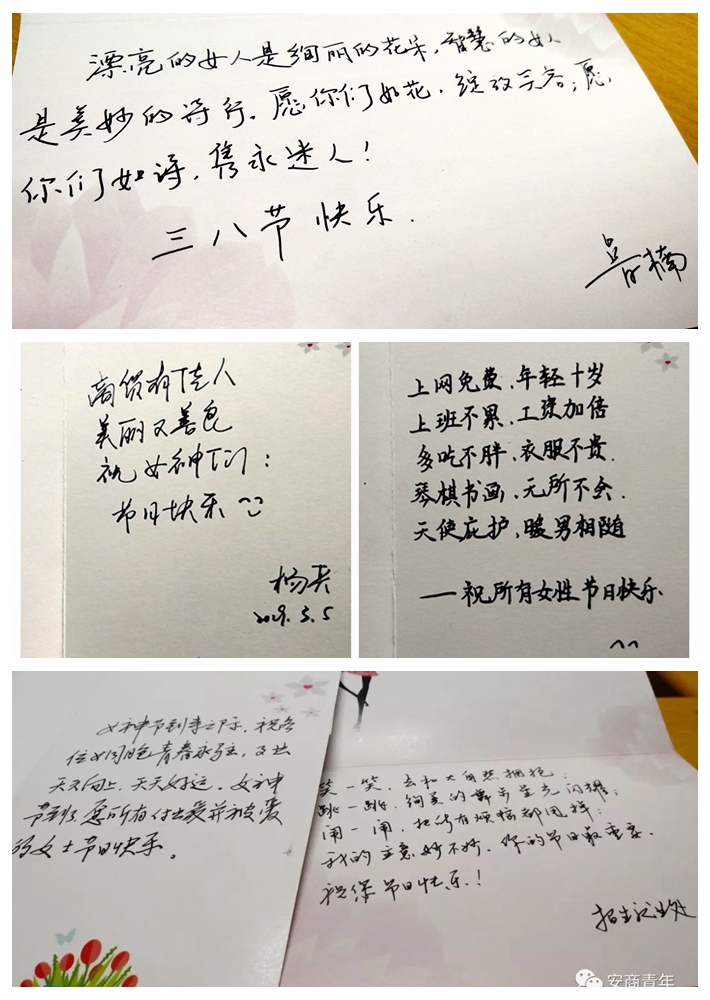 漂亮的女人是绚丽的花朵,智慧的女人
是美妙的诗行。愿你们如花,绽放美容;愿
你们如诗,隽永迷人!
三八节快乐.
楠
高贤有佳人
美丽又善良
祝女神们:
节日快乐
杨英
2019.3.5
上网免费、年轻十岁
上班不累、工资加倍
多吃不胖、衣服不贵.
琴棋书画,无所不会.
天使庇护,暖男相随
——祝所有女性节日快乐.
^^
女神节到来之际,祝各
位女同胞青春永驻,
天天向上,天天好运。女神
节到了,愿所有付出爱并被爱
的女士节日快乐。
笑一笑,去和大自然拥抱;
跳一跳,绚美的舞步星光闪耀;
闹一闹,把所有烦恼都甩掉;
我的主意妙不妙,你的节日最重要.
祝您节日快乐!
招生就业处
安商青年